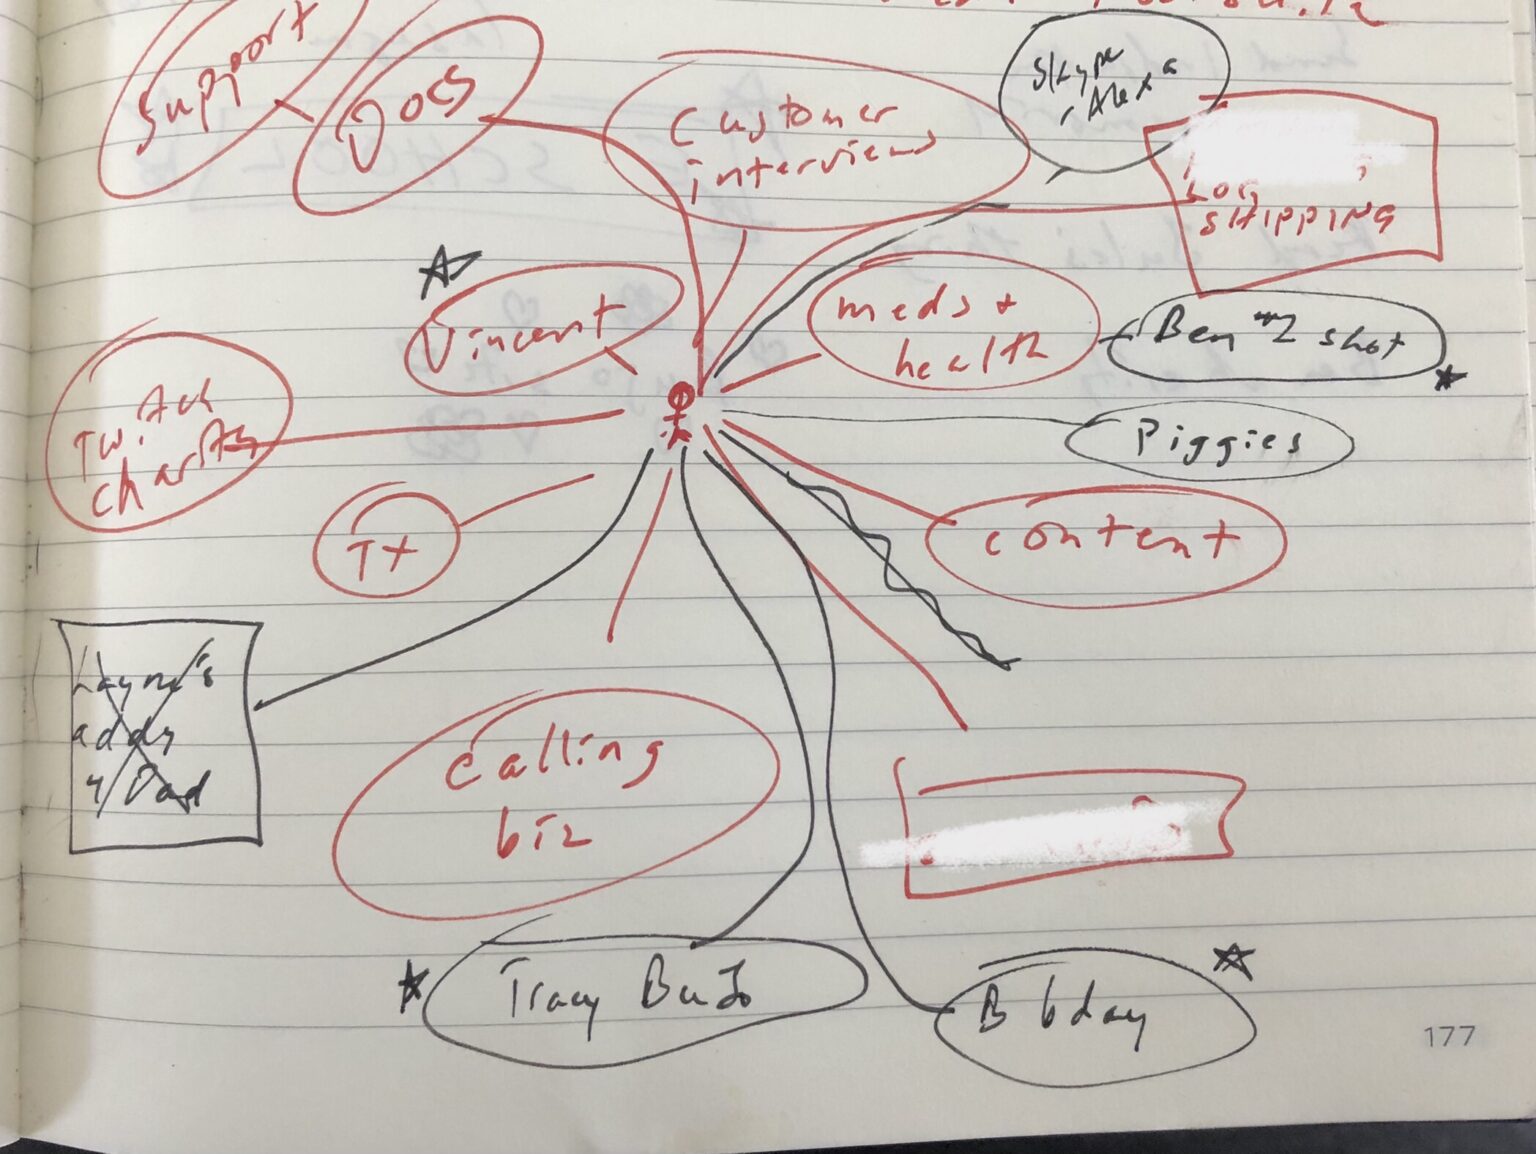 Support
Docs
Customer
interviews
Skype
Alexa
LOG
SHIPPING
Vincent
meds +
health
Ben #2 shot
Twitch
charity
Piggies
TX
content
Layne's
addy
4 Dad
calling
biz
Tracy BuJo
B bday
177